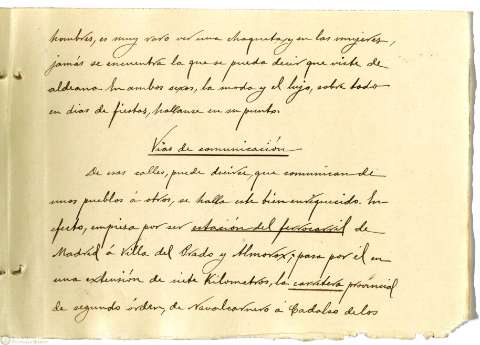 hombres, es muy raro ver una chaqueta, y en las mujeres,
jamás se encuentra la que se pueda decir que viste de
aldeana. En ambos sexos, la moda y el lujo, sobre todo
en dias de fiestas, hallanse en su punto.
Vías de comunicación
De esas calles, puede decirse, que comunican de
unos pueblos á otros, se halla este bien enriquecido. En
efecto, empieza por ser estación del ferrocarril de
Madrid á Villa del Prado y Almorox; pasa por él en
una extensión de siete Kilometros, la carretera provincial
de segundo órden, de Navalcarnero á Cadalso de los